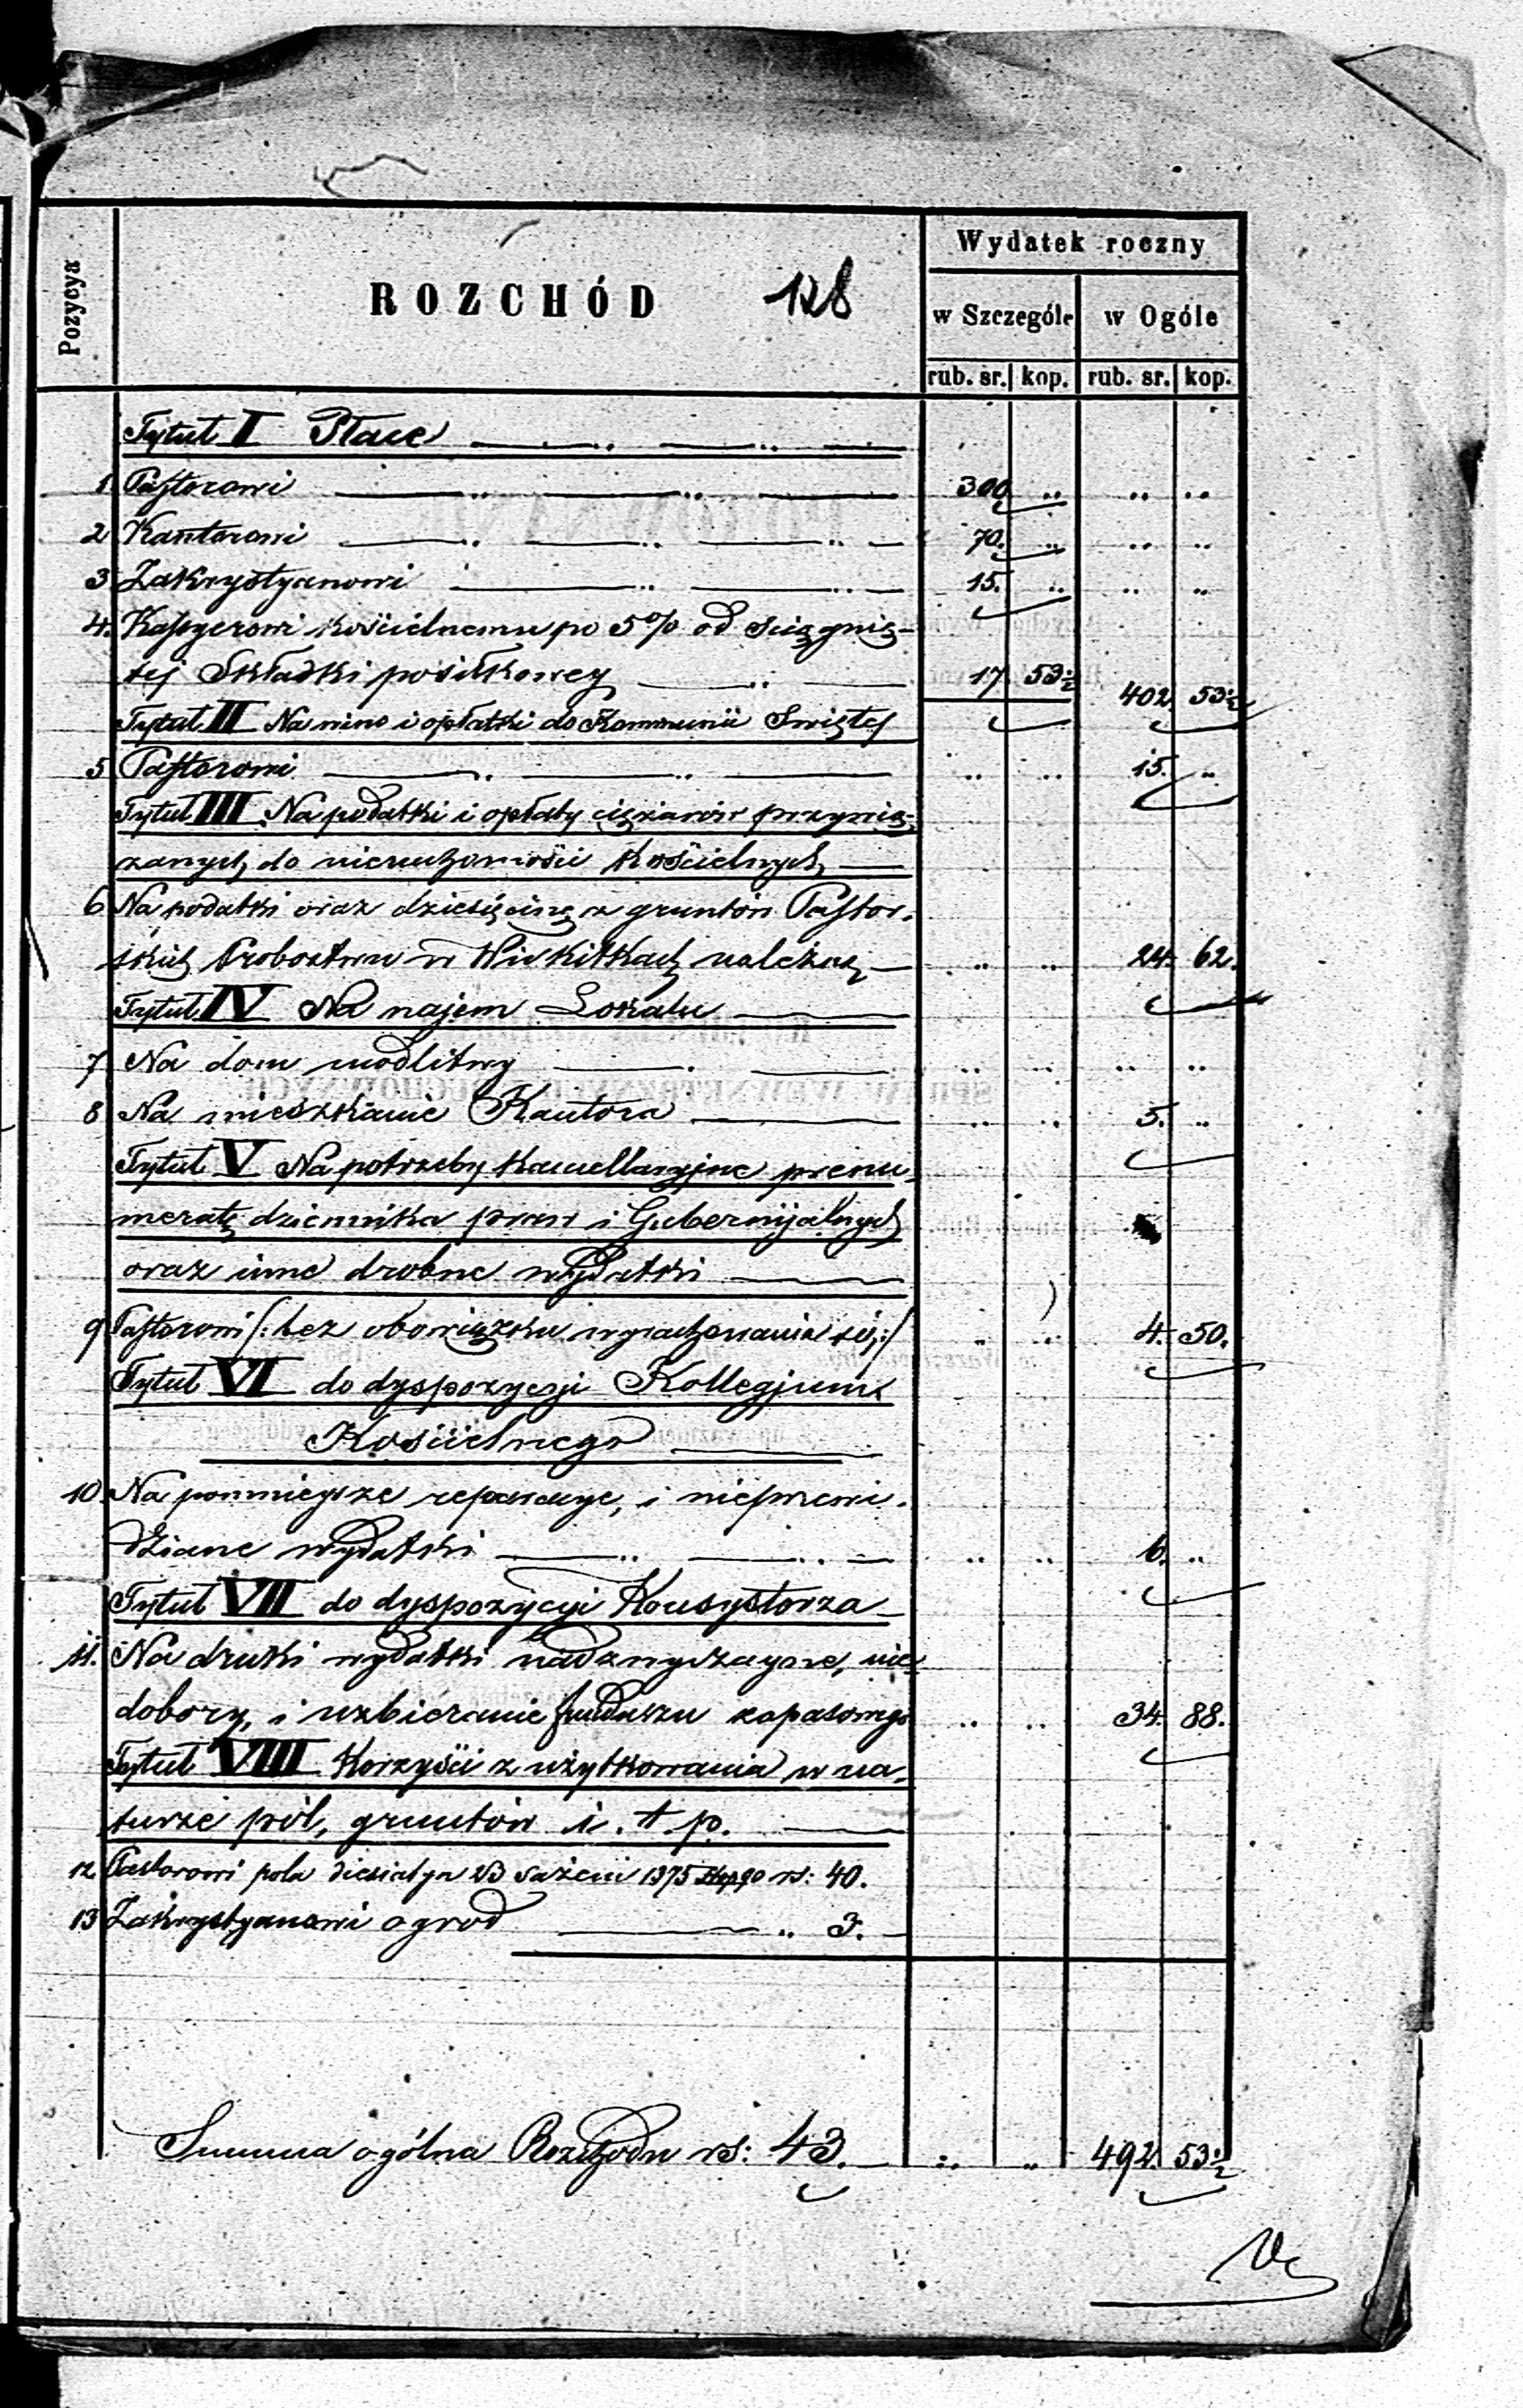 Wydatek roczny
Pozycya
ROZCHÓD
128
w Szczególe
w Ogóle
rub. sr. kop. rub. sr. kop.
Tytuł I Płace
1 Pastorowi 300 .. .. ..
2 Kantorowi 70. .. .. ..
3 Zakrystyanowi 15. .. .. ..
4. Kassyerowi kościelnemu po 5% od ściągnię-
tej Składki posiłkowey 17 53½ 402 53½
Tytuł II Na wino i opłatki do Kommunii Swiętej
5 Pastorowi .. .. 15. ..
Tytuł III Na podatki i opłaty ciężarów przywią-
zanych do nieruchomości Kościelnych
6 Na podatki oraz dziesięcinę z gruntów Pastor-
skich Probostwu w Wiskitkach należną .. .. 24. 62.
Tytuł IV Na najem Lokalu
7 Na dom modlitwy .. .. .. ..
8 Na mieszkanie Kantora .. .. 5. ..
Tytuł V Na potrzeby Kancellaryjne prenu-
meratę dziennika praw i Gubernijalnych
oraz inne drobne wydatki
9 Pastorowi /: bez obowiązku wyrachowania się :/ .. .. 4. 50.
Tytuł VI do dyspozycyi Kollegjum
Kościelnego
10. Na pomniejsze reparacye, i nieprzewi-
dziane wydatki .. .. 6. ..
Tytuł VII do dyspozycyi Konsystorza
11. Na druki wydatki nadzwyczayne, nie-
dobory, i uzbieranie funduszu zapasowego .. .. 34. 88.
Tytuł VIII Korzyści z użytkowania w na-
turze pól, gruntów i. t. p.
12 Pastorowi pola diesiatyn 23 sażeni 1375 rs: 40.
13 Zakrystyanowi ogrod .. 3.
Summa ogólna Rozchodu rs: 43. .. .. 492. 53½